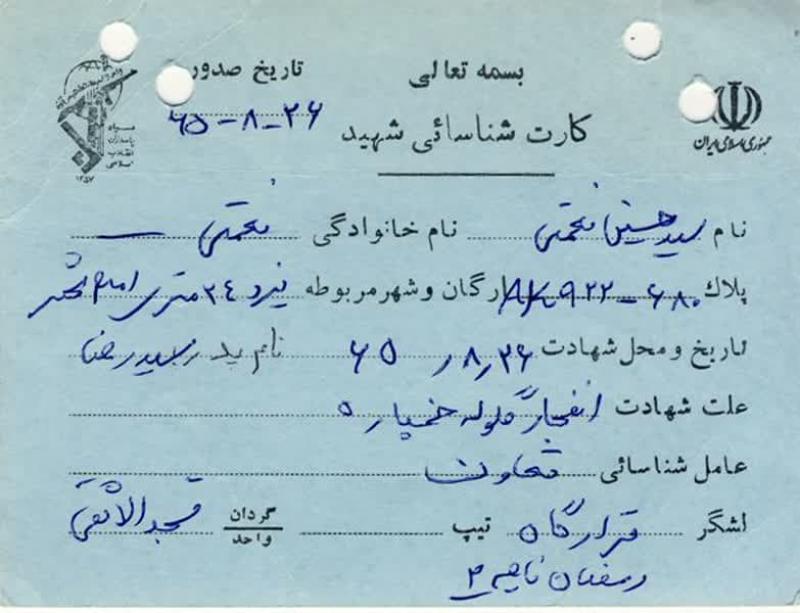 بسمه تعالی
تاریخ صدور ۶۵-۸-۲۶
کارت شناسائی شهید
جمهوری اسلامی ایران
سپاه پاسداران انقلاب اسلامی
۱۳۵۷
نام سید حسین نعمتی نام خانوادگی نعمتی
پلاک ۶۸۰-۹۲۲ AK ارگان و شهر مربوطه ۲۴ متری
تاریخ و محل شهادت ۲۶ر۸ر۶۵ نام پدر سید رضا
علت شهادت انفجار گلوله خمپاره
عامل شناسائی تعاون
لشگر قرارگاه تیپ گردان واحد مسجدالاقصی
رمضان ناحیه ۳